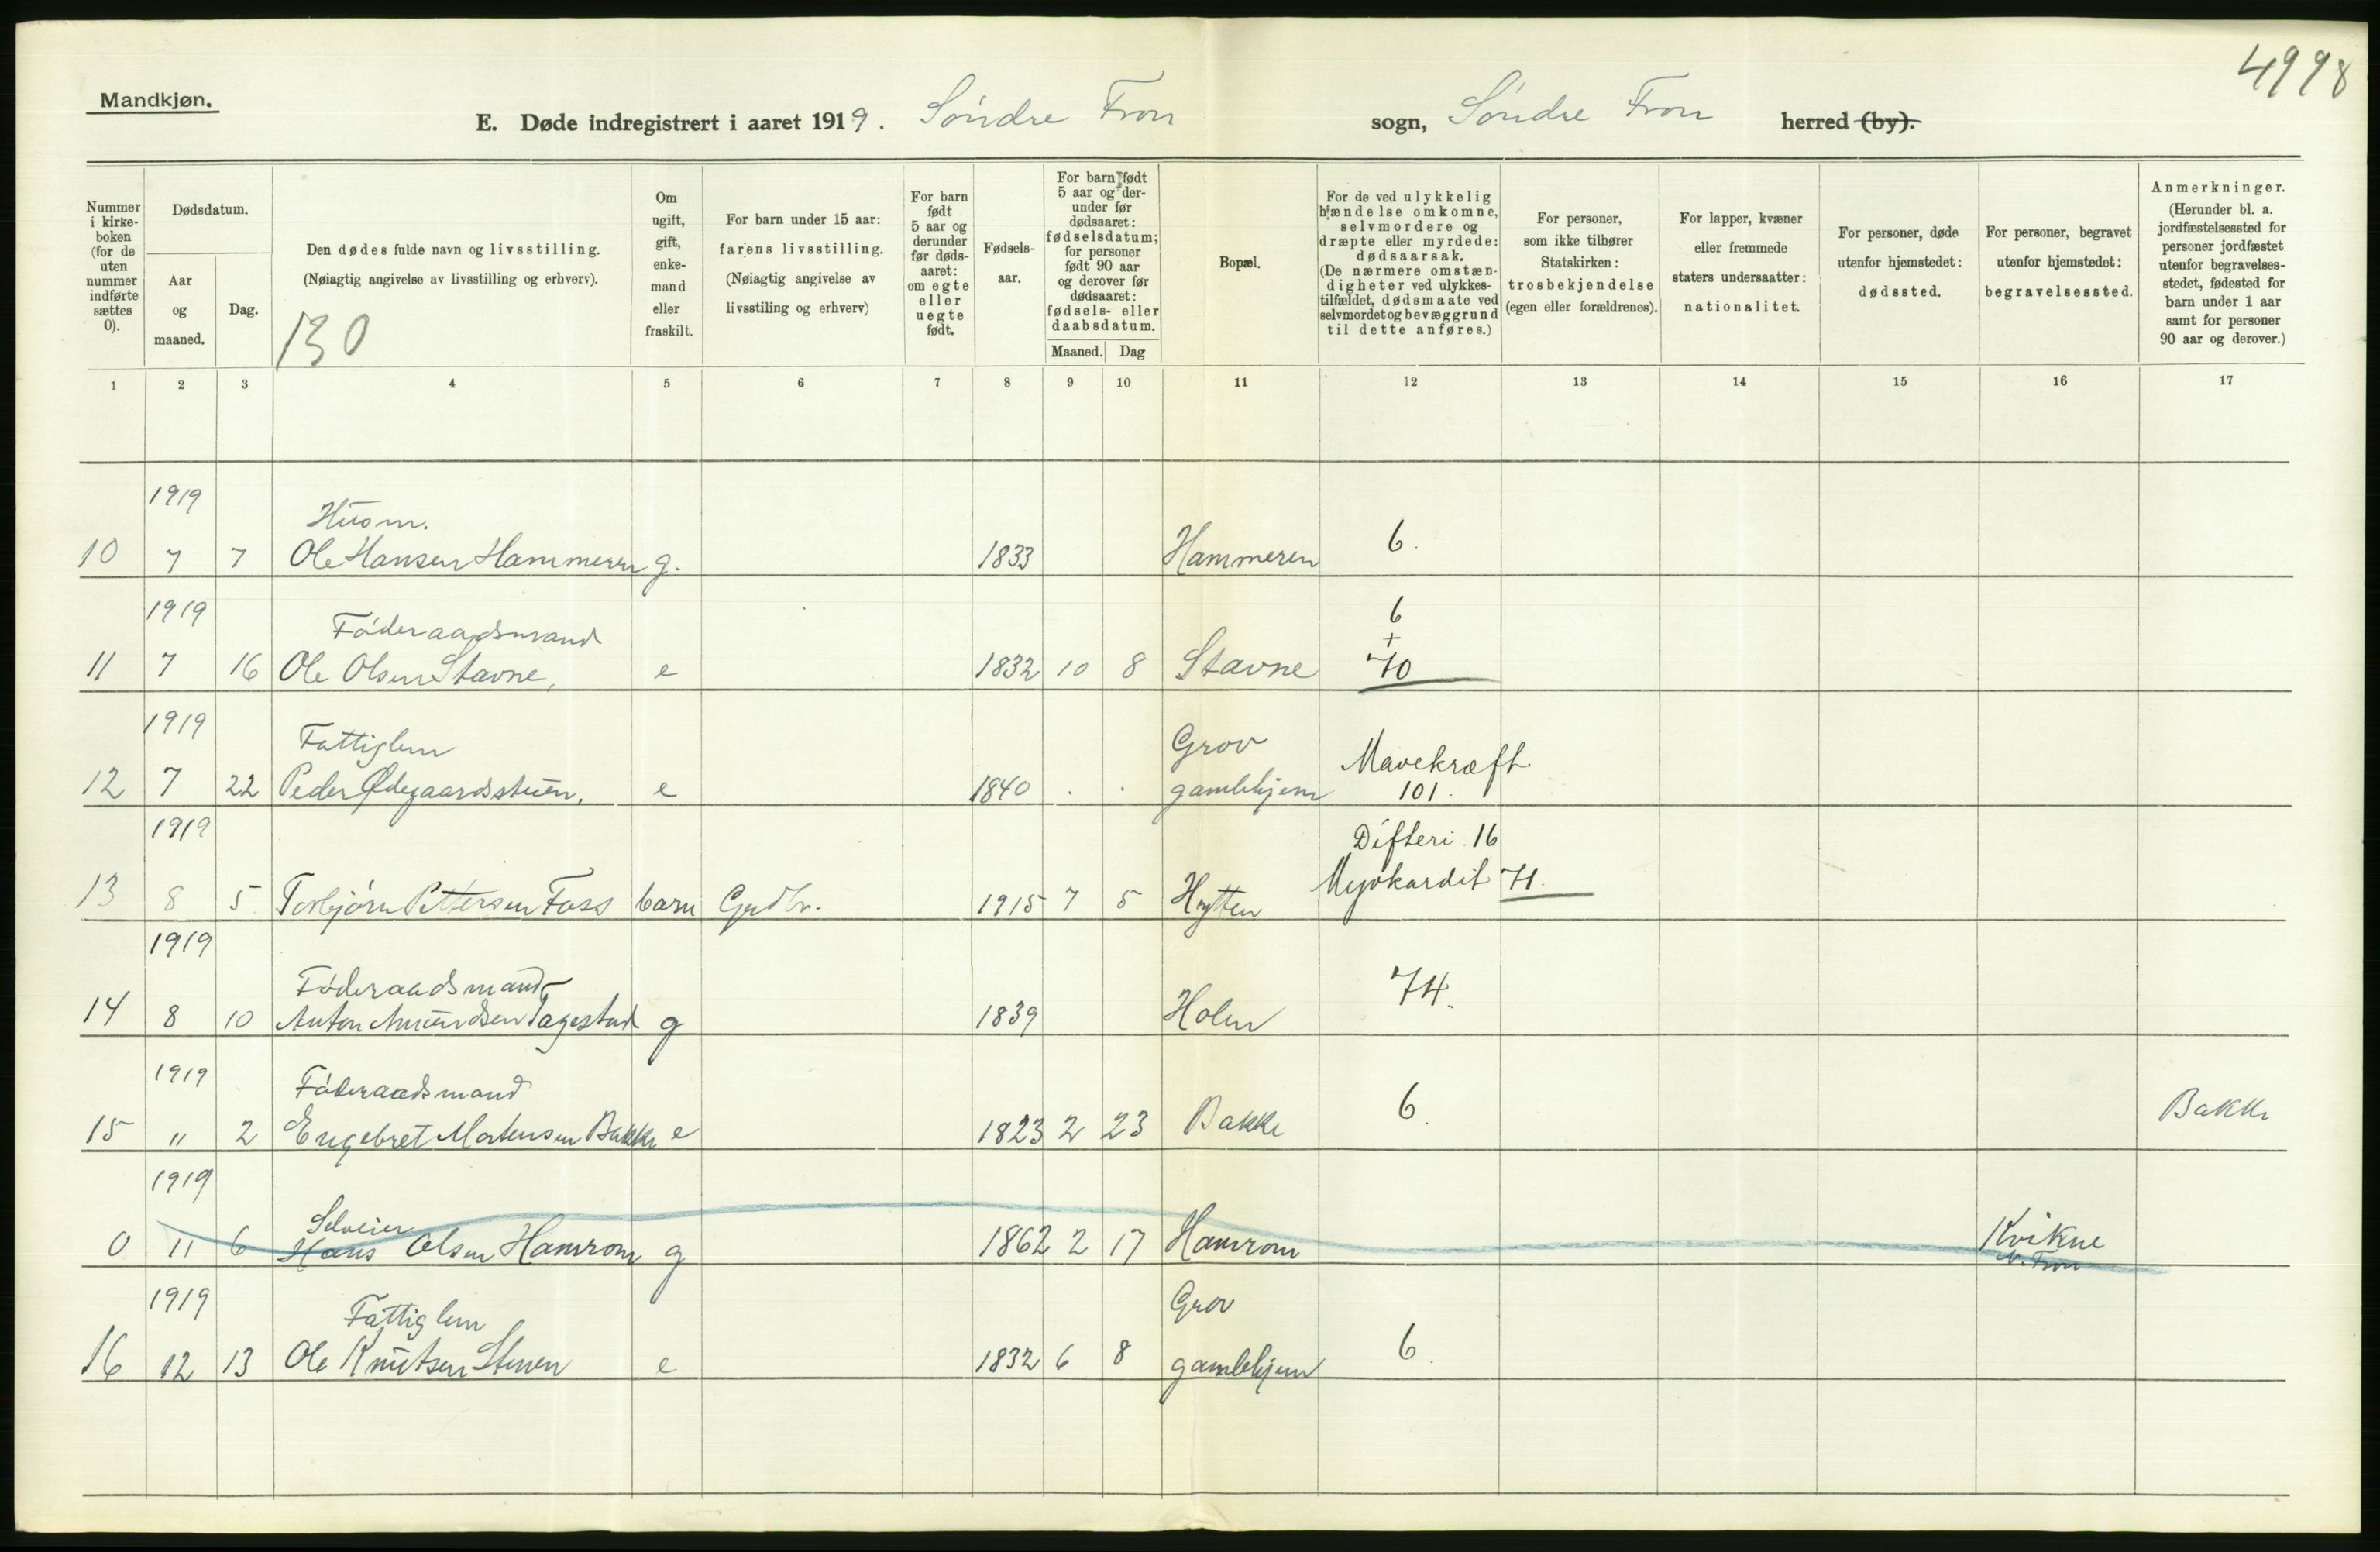 4998
Mandkjøn.
E. Døde indregistrert i aaret 1919. Söndre Fron sogn, Söndre Fron herred (by).
Nummer i kirke-boken (for de uten nummer indførte sættes 0).
Dødsdatum.
Aar og maaned.
Dag.
Den dødes fulde navn og livsstilling.
(Nøiagtig angivelse av livsstilling og erhverv).
130
Om ugift, gift, enke-mand eller fraskilt.
For barn under 15 aar: farens livsstilling. (Nøiagtig angivelse av livsstiling og erhverv)
For barn født 5 aar og derunder før døds-aaret: om egte eller uegte født.
Fødsels-aar.
For barn født 5 aar og der-under før dødsaaret: fødselsdatum; for personer født 90 aar og derover før dødsaaret: fødsels- eller daabsdatum.
Maaned. Dag
Bopæl.
For de ved ulykkelig hændelse omkomne, selvmordere og dræpte eller myrdede: dødsaarsak. (De nærmere omstæn-digheter ved ulykkes-tilfældet, dødsmaate ved selvmordet og bevæggrund til dette anføres.)
For personer, som ikke tilhører Statskirken: trosbekjendelse (egen eller forældrenes).
For lapper, kvæner eller fremmede staters undersaatter: nationalitet.
For personer, døde utenfor hjemstedet: dødssted.
For personer, begravet utenfor hjemstedet: begravelsessted.
Anmerkninger. (Herunder bl. a. jordfæstelsessted for personer jordfæstet utenfor begravelses-stedet, fødested for barn under 1 aar samt for personer 90 aar og derover.)
1 2 3 4 5 6 7 8 9 10 11 12 13 14 15 16 17
1919
Husm.
10 7 7 Ole Hansen Hammeren g. 1833 Hammeren 6.
1919 6
Föderaadsmand +
11 7 16 Ole Olsen Stavne, e 1832 10 8 Stavne 70
1919
Fattiglem Grov Mavekræft
12 7 22 Peder Ødegaardsstuen, e 1840 . . gamlehjem 101.
1919 Difteri 16
13 8 5 Torbjörn Pettersen Foss barn Grdbr. 1915 7 5 Hytten Myokardit 71.
1919
Föderaadsmand
14 8 10 Anton Amundsen Tagestad g 1839 Holm 74.
1919
Föderaadsmand
15 " 2 Engebret Mortensen Bakke e 1823 2 23 Bakke 6. Bakke
1919
Selveier
0 11 6 Hans Olsen Hamrom g 1862 2 17 Hamrom Kvikne
N. Fron
1919
Fattiglem Grov
16 12 13 Ole Knutsen Stenen e 1832 6 8 gamlehjem 6.